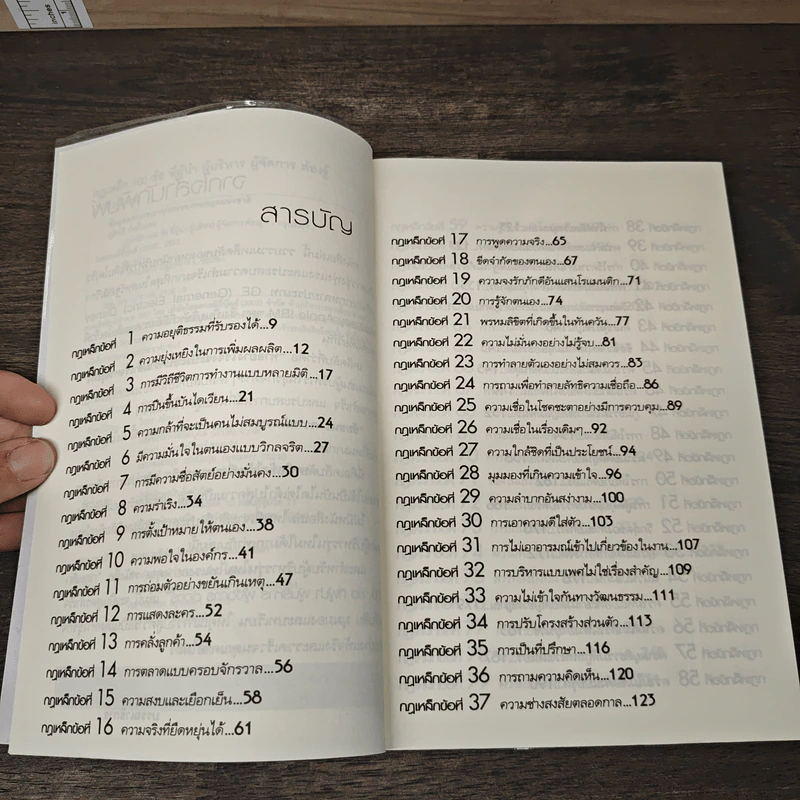 สารบัญ
กฎเหล็กข้อที่ 1 ความอยุติธรรมที่รับรองได้...9
กฎเหล็กข้อที่ 2 ความยุ่งเหยิงในการเพิ่มผลผลิต...12
กฎเหล็กข้อที่ 3 การมีวิถีชีวิตการทำงานแบบหลายมิติ...17
กฎเหล็กข้อที่ 4 การปีนขึ้นบันไดเวียน...21
กฎเหล็กข้อที่ 5 ความกล้าที่จะเป็นคนไม่สมบูรณ์แบบ...24
กฎเหล็กข้อที่ 6 มีความมั่นใจในตนเองแบบวิกลจริต...27
กฎเหล็กข้อที่ 7 การมีความซื่อสัตย์อย่างมั่นคง...30
กฎเหล็กข้อที่ 8 ความร่าเริง...34
กฎเหล็กข้อที่ 9 การตั้งเป้าหมายให้ตนเอง...38
กฎเหล็กข้อที่ 10 ความพอใจในองค์กร...41
กฎเหล็กข้อที่ 11 การถ่อมตัวอย่างขยันเกินเหตุ...47
กฎเหล็กข้อที่ 12 การแสดงละคร...52
กฎเหล็กข้อที่ 13 การคลั่งลูกค้า...54
กฎเหล็กข้อที่ 14 การตลาดแบบครอบจักรวาล...56
กฎเหล็กข้อที่ 15 ความสงบและเยือกเย็น...58
กฎเหล็กข้อที่ 16 ความจริงที่ยืดหยุ่นได้...61
กฎเหล็กข้อที่ 17 การพูดความจริง...65
กฎเหล็กข้อที่ 18 ขีดจำกัดของตนเอง...67
กฎเหล็กข้อที่ 19 ความจงรักภักดีอันแสนโรแมนติก...71
กฎเหล็กข้อที่ 20 การรู้จักตนเอง...74
กฎเหล็กข้อที่ 21 พรหมลิขิตที่เกิดขึ้นในทันควัน...77
กฎเหล็กข้อที่ 22 ความไม่มั่นคงอย่างไม่รู้จบ...81
กฎเหล็กข้อที่ 23 การทำลายตัวเองอย่างไม่สมควร...83
กฎเหล็กข้อที่ 24 การถามเพื่อทำลายลัทธิความเชื่อถือ...86
กฎเหล็กข้อที่ 25 ความเชื่อในโชคชะตาอย่างมีการควบคุม...89
กฎเหล็กข้อที่ 26 ความเชื่อในเรื่องเดิมๆ...92
กฎเหล็กข้อที่ 27 ความใกล้ชิดที่เป็นประโยชน์...94
กฎเหล็กข้อที่ 28 มุมมองที่เกินความเข้าใจ...96
กฎเหล็กข้อที่ 29 ความลำบากอันสง่างาม...100
กฎเหล็กข้อที่ 30 การเอาความดีใส่ตัว...103
กฎเหล็กข้อที่ 31 การไม่เอาอารมณ์เข้าไปเกี่ยวข้องในงาน...107
กฎเหล็กข้อที่ 32 การบริหารแบบเพศไม่ใช่เรื่องสำคัญ...109
กฎเหล็กข้อที่ 33 ความไม่เข้าใจกันทางวัฒนธรรม...111
กฎเหล็กข้อที่ 34 การปรับโครงสร้างส่วนตัว...113
กฎเหล็กข้อที่ 35 การเป็นที่ปรึกษา...116
กฎเหล็กข้อที่ 36 การถามความคิดเห็น...120
กฎเหล็กข้อที่ 37 ความช่างสงสัยตลอดกาล...123